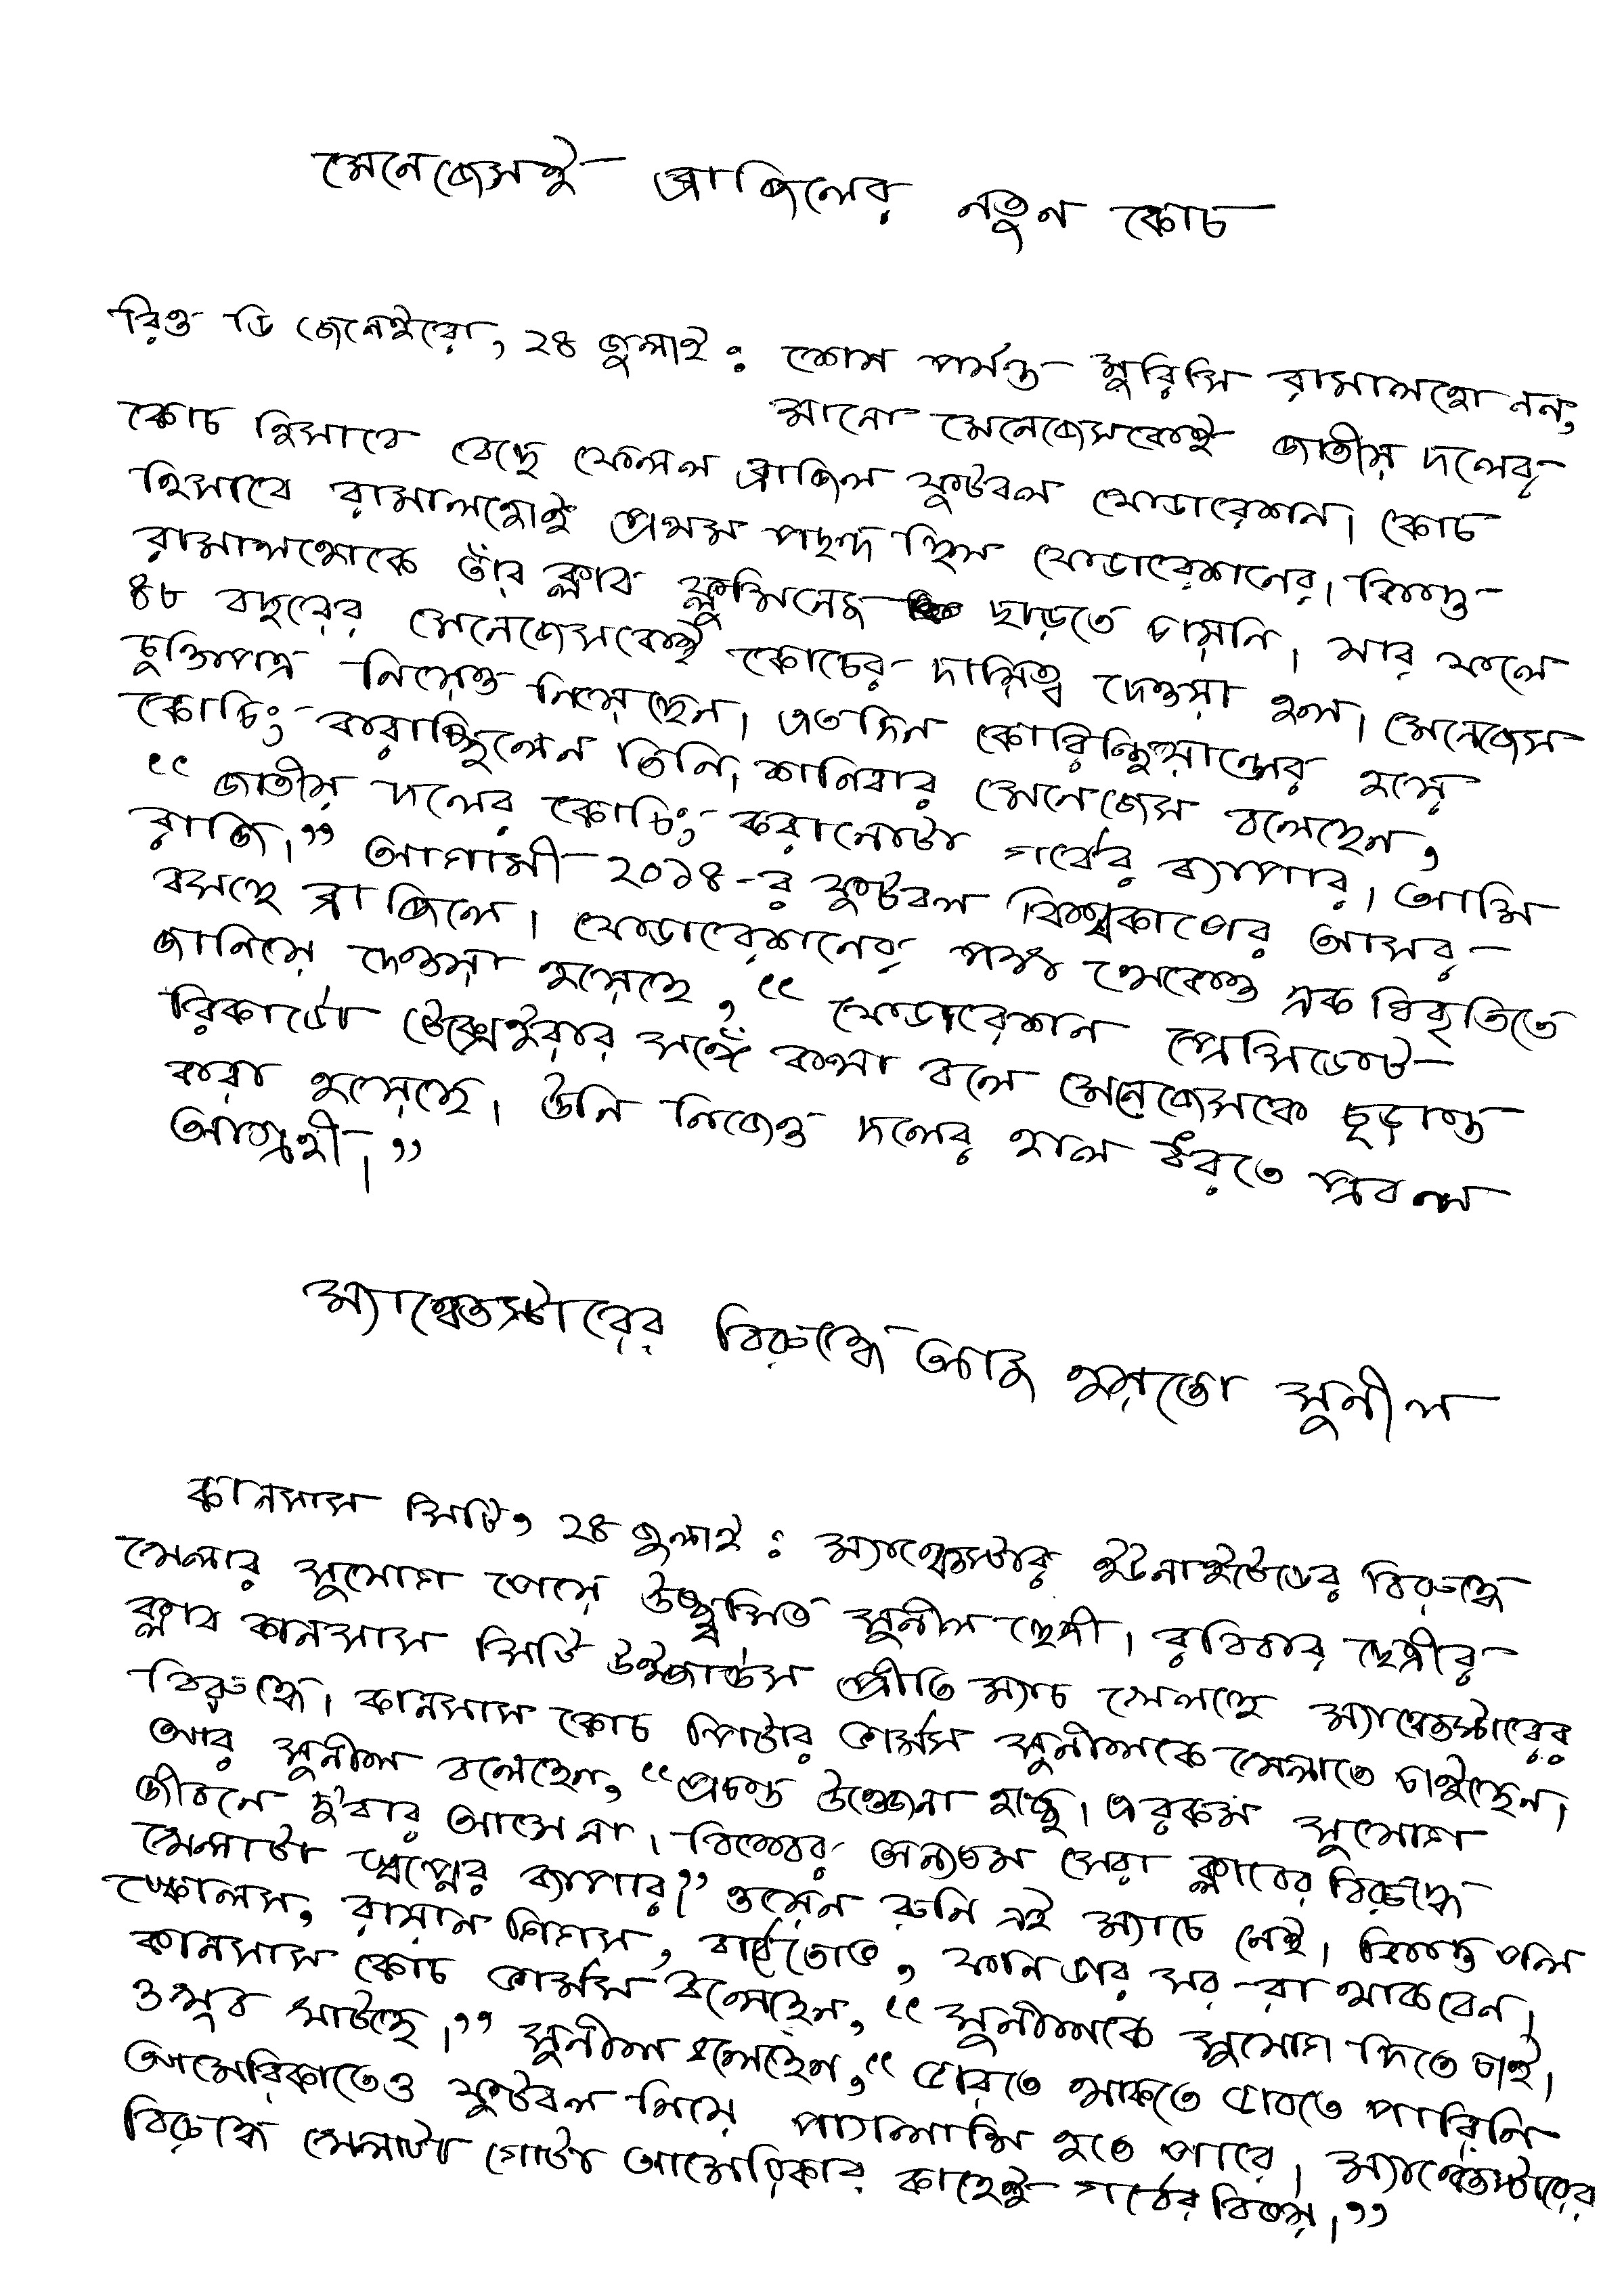 মেনেজেসই ব্রাজিলের নতুন কোচ
রিও ডি জেনেইরো, ২৪ জুলাই : শেষ পর্যন্ত মুরিসি রামালহো নন,
মানো মেনেজেসকেই জাতীয় দলের
কোচ হিসাবে বেছে ফেলল ব্রাজিল ফুটবল ফেডারেশন। কোচ
হিসাবে রামালহোই প্রথম পছন্দ ছিল ফেডারেশনের। কিন্তু
রামালহোকে তাঁর ক্লাব ফ্লুমিনেন্স ছাড়তে চায়নি। যার ফলে
৪৮ বছরের মেনেজেসকেই কোচের দায়িত্ব দেওয়া হল। মেনেজেস
চুক্তিপত্র নিয়েও নিয়েছেন। এতদিন কোরিন্থিয়ান্সের হয়ে
কোচিং করাচ্ছিলেন তিনি। শনিবার মেনেজেস বলেছেন,
“জাতীয় দলের কোচিং করানোটা গর্বের ব্যাপার। আমি
রাজি।” আগামী ২০১৪-র ফুটবল বিশ্বকাপের আসর
বসছে ব্রাজিলে। ফেডারেশনের পক্ষ থেকেও এক বিবৃতিতে
জানিয়ে দেওয়া হয়েছে, “ফেডারেশন প্রেসিডেন্ট
রিকার্ডো টেক্সেইরার সঙ্গে কথা বলে মেনেজেসকে চূড়ান্ত
করা হয়েছে। উনি নিজেও দলের হাল ধরতে প্রবল
আগ্রহী।”
ম্যাঞ্চেস্টারের বিরুদ্ধে আজ হয়তো সুনীল
কানসাস সিটি, ২৪ জুলাই : ম্যাঞ্চেস্টার ইউনাইটেডের বিরুদ্ধে
খেলার সুযোগ পেয়ে উচ্ছ্বসিত সুনীল ছেত্রী। রবিবার ছেত্রীর
ক্লাব কানসাস সিটি উইজার্ডস প্রীতি ম্যাচ খেলছে ম্যাঞ্চেস্টারের
বিরুদ্ধে। কানসাস কোচ পিটার ভার্মস সুনীলকে খেলাতে চাইছেন।
আর সুনীল বলেছেন, “প্রচণ্ড উত্তেজনা হচ্ছে। এরকম সুযোগ
জীবনে দু'বার আসে না। বিশ্বের অন্যতম সেরা ক্লাবের বিরুদ্ধে
খেলাটা স্বপ্নের ব্যাপার।” ওয়েন রুনি এই ম্যাচে নেই। কিন্তু পল
স্কোলস, রায়ান গিগস, বার্বেতোভ, ফান ডার সর-রা থাকবেন।
কানসাস কোচ ভার্মস বলেছেন, “সুনীলকে সুযোগ দিতে চাই।
ও খুব খাটছে।” সুনীল বলেছেন, “ভারতে থাকতে ভাবতে পারিনি
আমেরিকাতেও ফুটবল নিয়ে পাগলামি হতে পারে। ম্যাঞ্চেস্টারের
বিরুদ্ধে খেলাটা গোটা আমেরিকার কাছেই গর্বের বিষয়।”